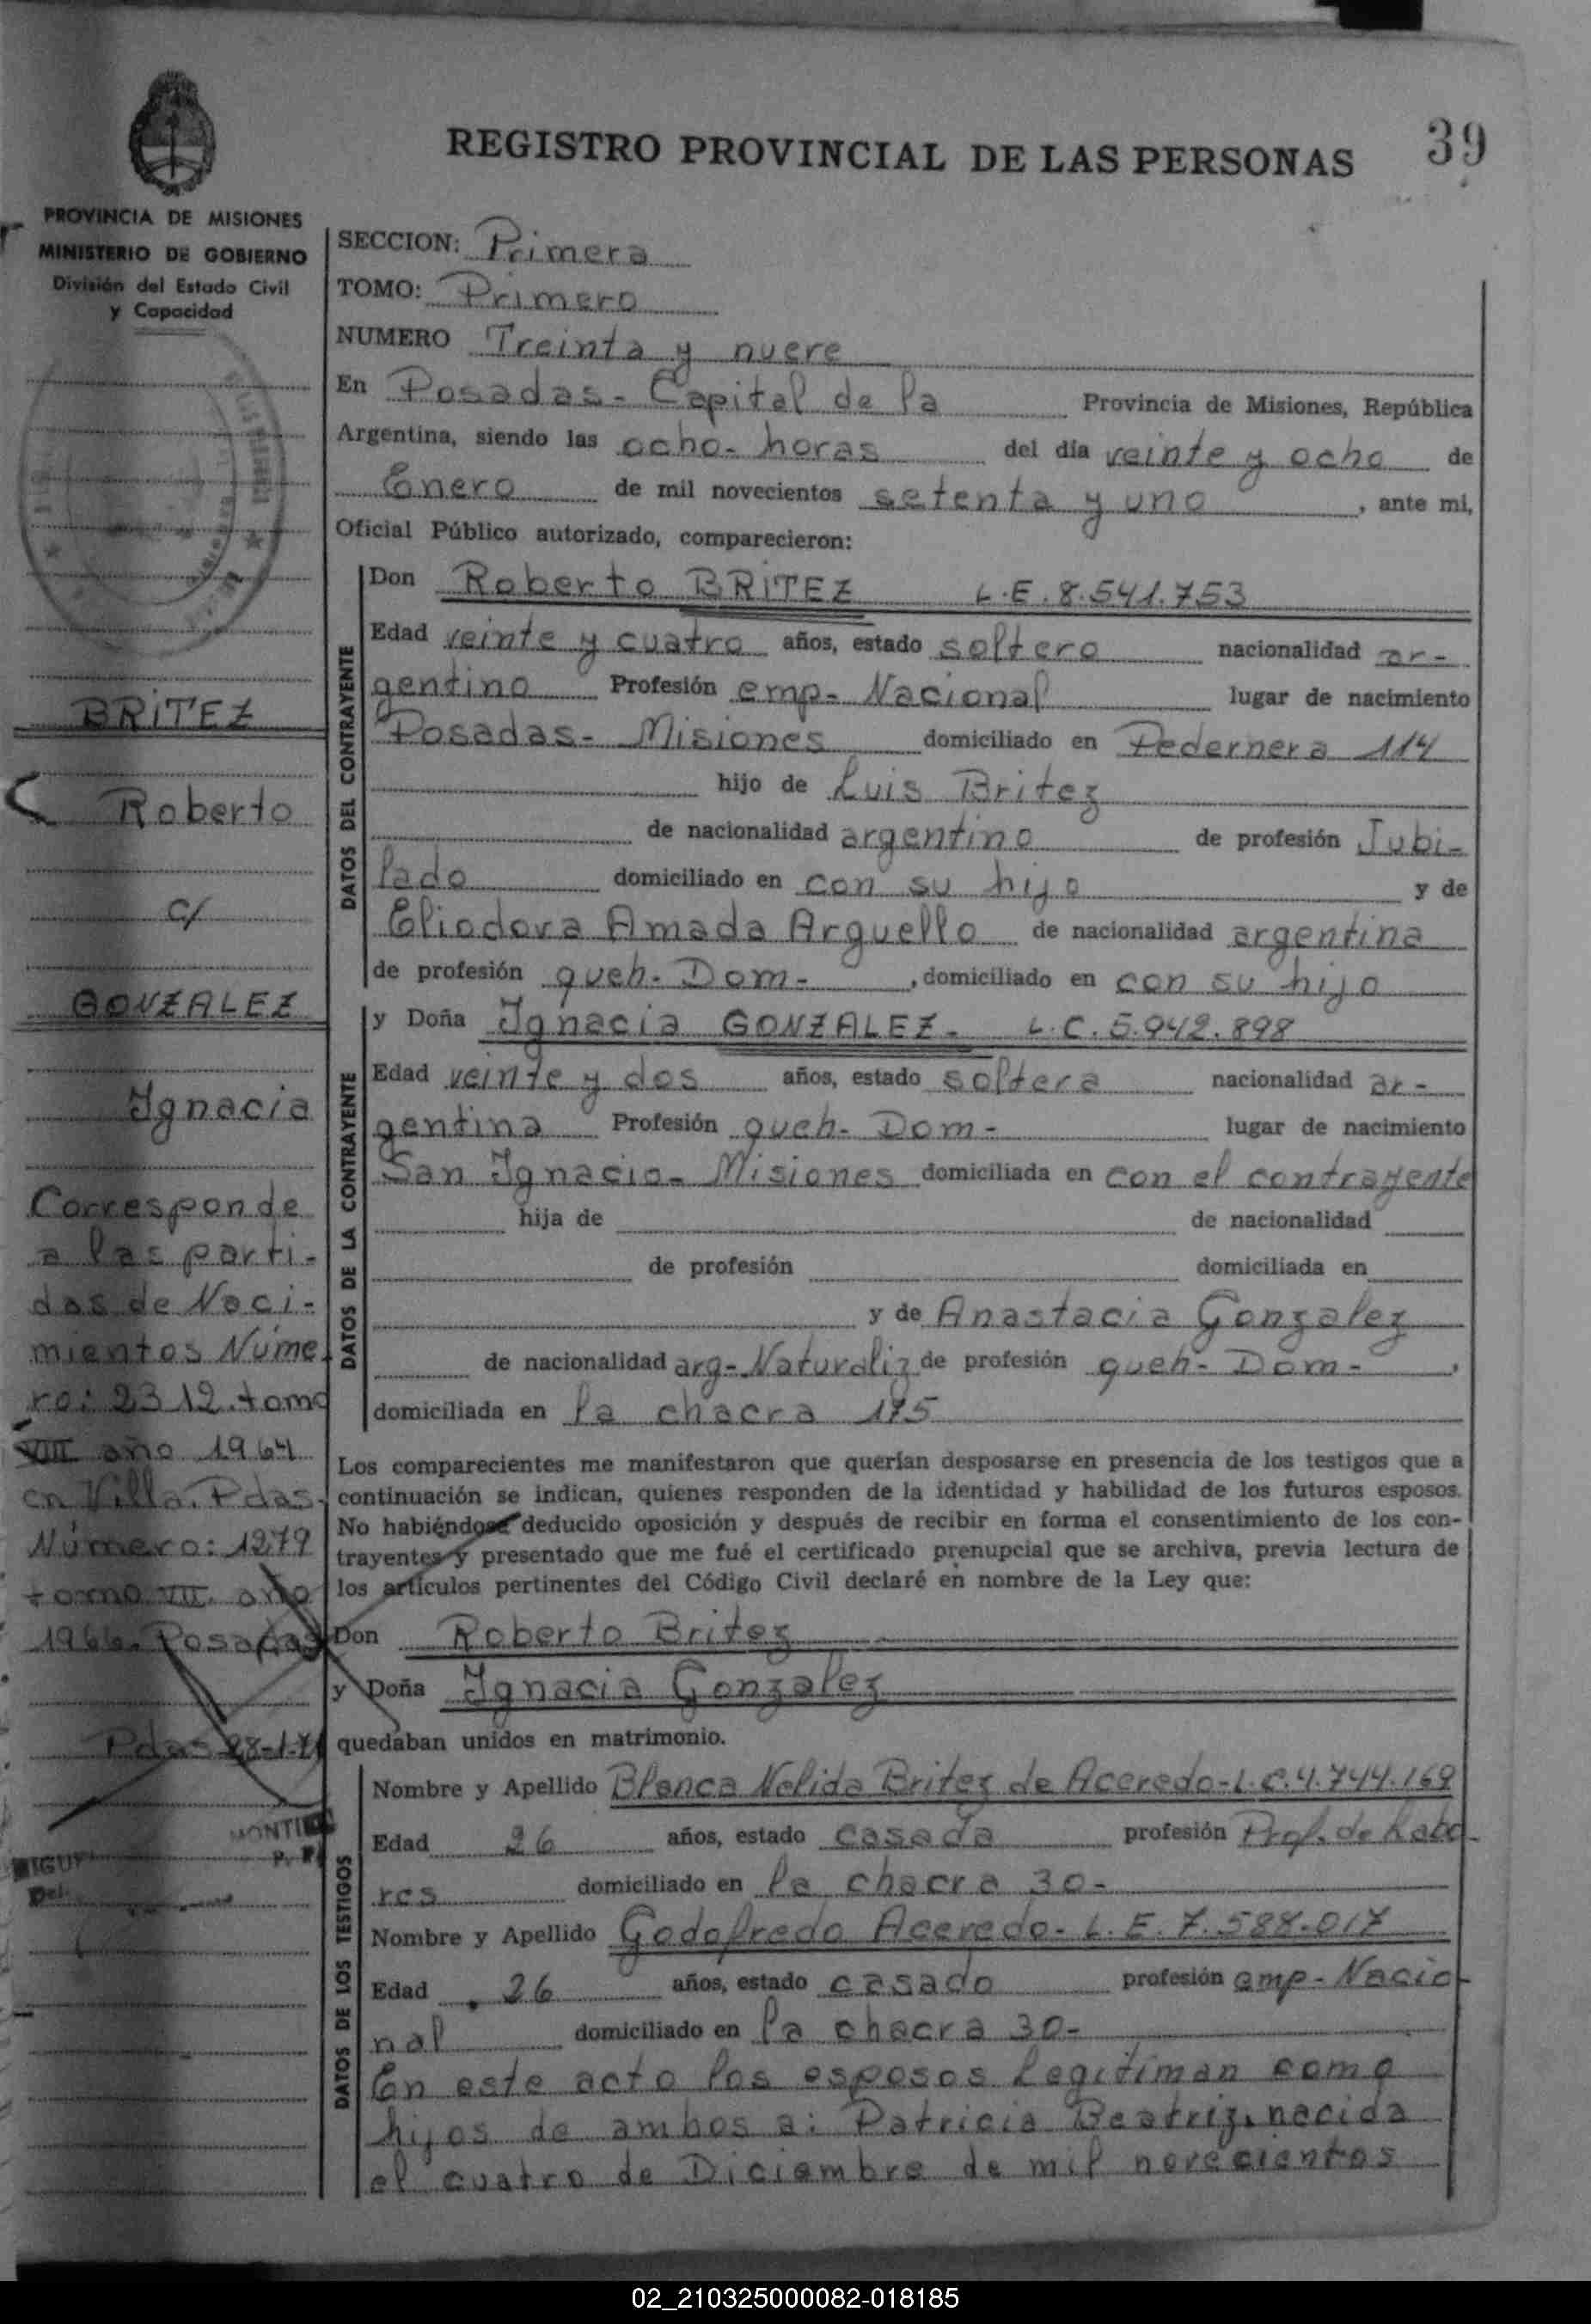 REGISTRO PROVINCIAL DE LAS PERSONAS
39
PROVINCIA DE MISIONES
MINISTERIO DE GOBIERNO
División del Estado Civil
y Capacidad
BRITEZ
Roberto
c/
GONZALEZ
Ignacia
Corresponde
a las parti-
das de Naci-
mientos Núme
ro: 2312. tomo
VIII año 1964
en Villa. Pdas.
Número: 1279
tomo VII. año
1966. Posadas
Pdas 28-1-71
MONTI
SECCION: Primera
TOMO: Primero
NUMERO Treinta y nueve
En Posadas- Capital de la Provincia de Misiones, República
Argentina, siendo las ocho- horas del día veinte y ocho de
Enero de mil novecientos setenta y uno, ante mi,
Oficial Público autorizado, comparecieron:
DATOS DEL CONTRAYENTE
Don Roberto BRITEZ L.E. 8.541.753
Edad veinte y cuatro años, estado soltero nacionalidad ar-
gentino Profesión emp- Nacional lugar de nacimiento
Posadas- Misiones domiciliado en Pedernera 114
hijo de Luis Britez
de nacionalidad argentino de profesión Jubi-
lado domiciliado en con su hijo y de
Eliodora Amada Arguello de nacionalidad argentina
de profesión queh- Dom-, domiciliado en con su hijo
DATOS DE LA CONTRAYENTE
y Doña Ignacia GONZALEZ- L.C. 5.942.898
Edad veinte y dos años, estado soltera nacionalidad ar-
gentina Profesión queh- Dom- lugar de nacimiento
San Ignacio- Misiones domiciliada en con el contrayente
hija de de nacionalidad
de profesión domiciliada en
y de Anastacia Gonzalez
de nacionalidad arg- Naturaliz de profesión queh- Dom-,
domiciliada en la chacra 175
Los comparecientes me manifestaron que querían desposarse en presencia de los testigos que a
continuación se indican, quienes responden de la identidad y habilidad de los futuros esposos.
No habiéndose deducido oposición y después de recibir en forma el consentimiento de los con-
trayentes y presentado que me fué el certificado prenupcial que se archiva, previa lectura de
los artículos pertinentes del Código Civil declaré en nombre de la Ley que:
Don Roberto Britez
y Doña Ignacia Gonzalez
quedaban unidos en matrimonio.
DATOS DE LOS TESTIGOS
Nombre y Apellido Blanca Nelida Britez de Acevedo- L.C. 4.744.169
Edad 26 años, estado casada profesión Prof. de Labo-
res domiciliado en la chacra 30-
Nombre y Apellido Godofredo Acevedo- L.E. 7.588-017
Edad 26 años, estado casado profesión emp- Nacio-
nal domiciliado en la chacra 30-
En este acto los esposos legitiman como
hijos de ambos a: Patricia Beatriz, nacida
el cuatro de Diciembre de mil novecientos
02_210325000082-018185